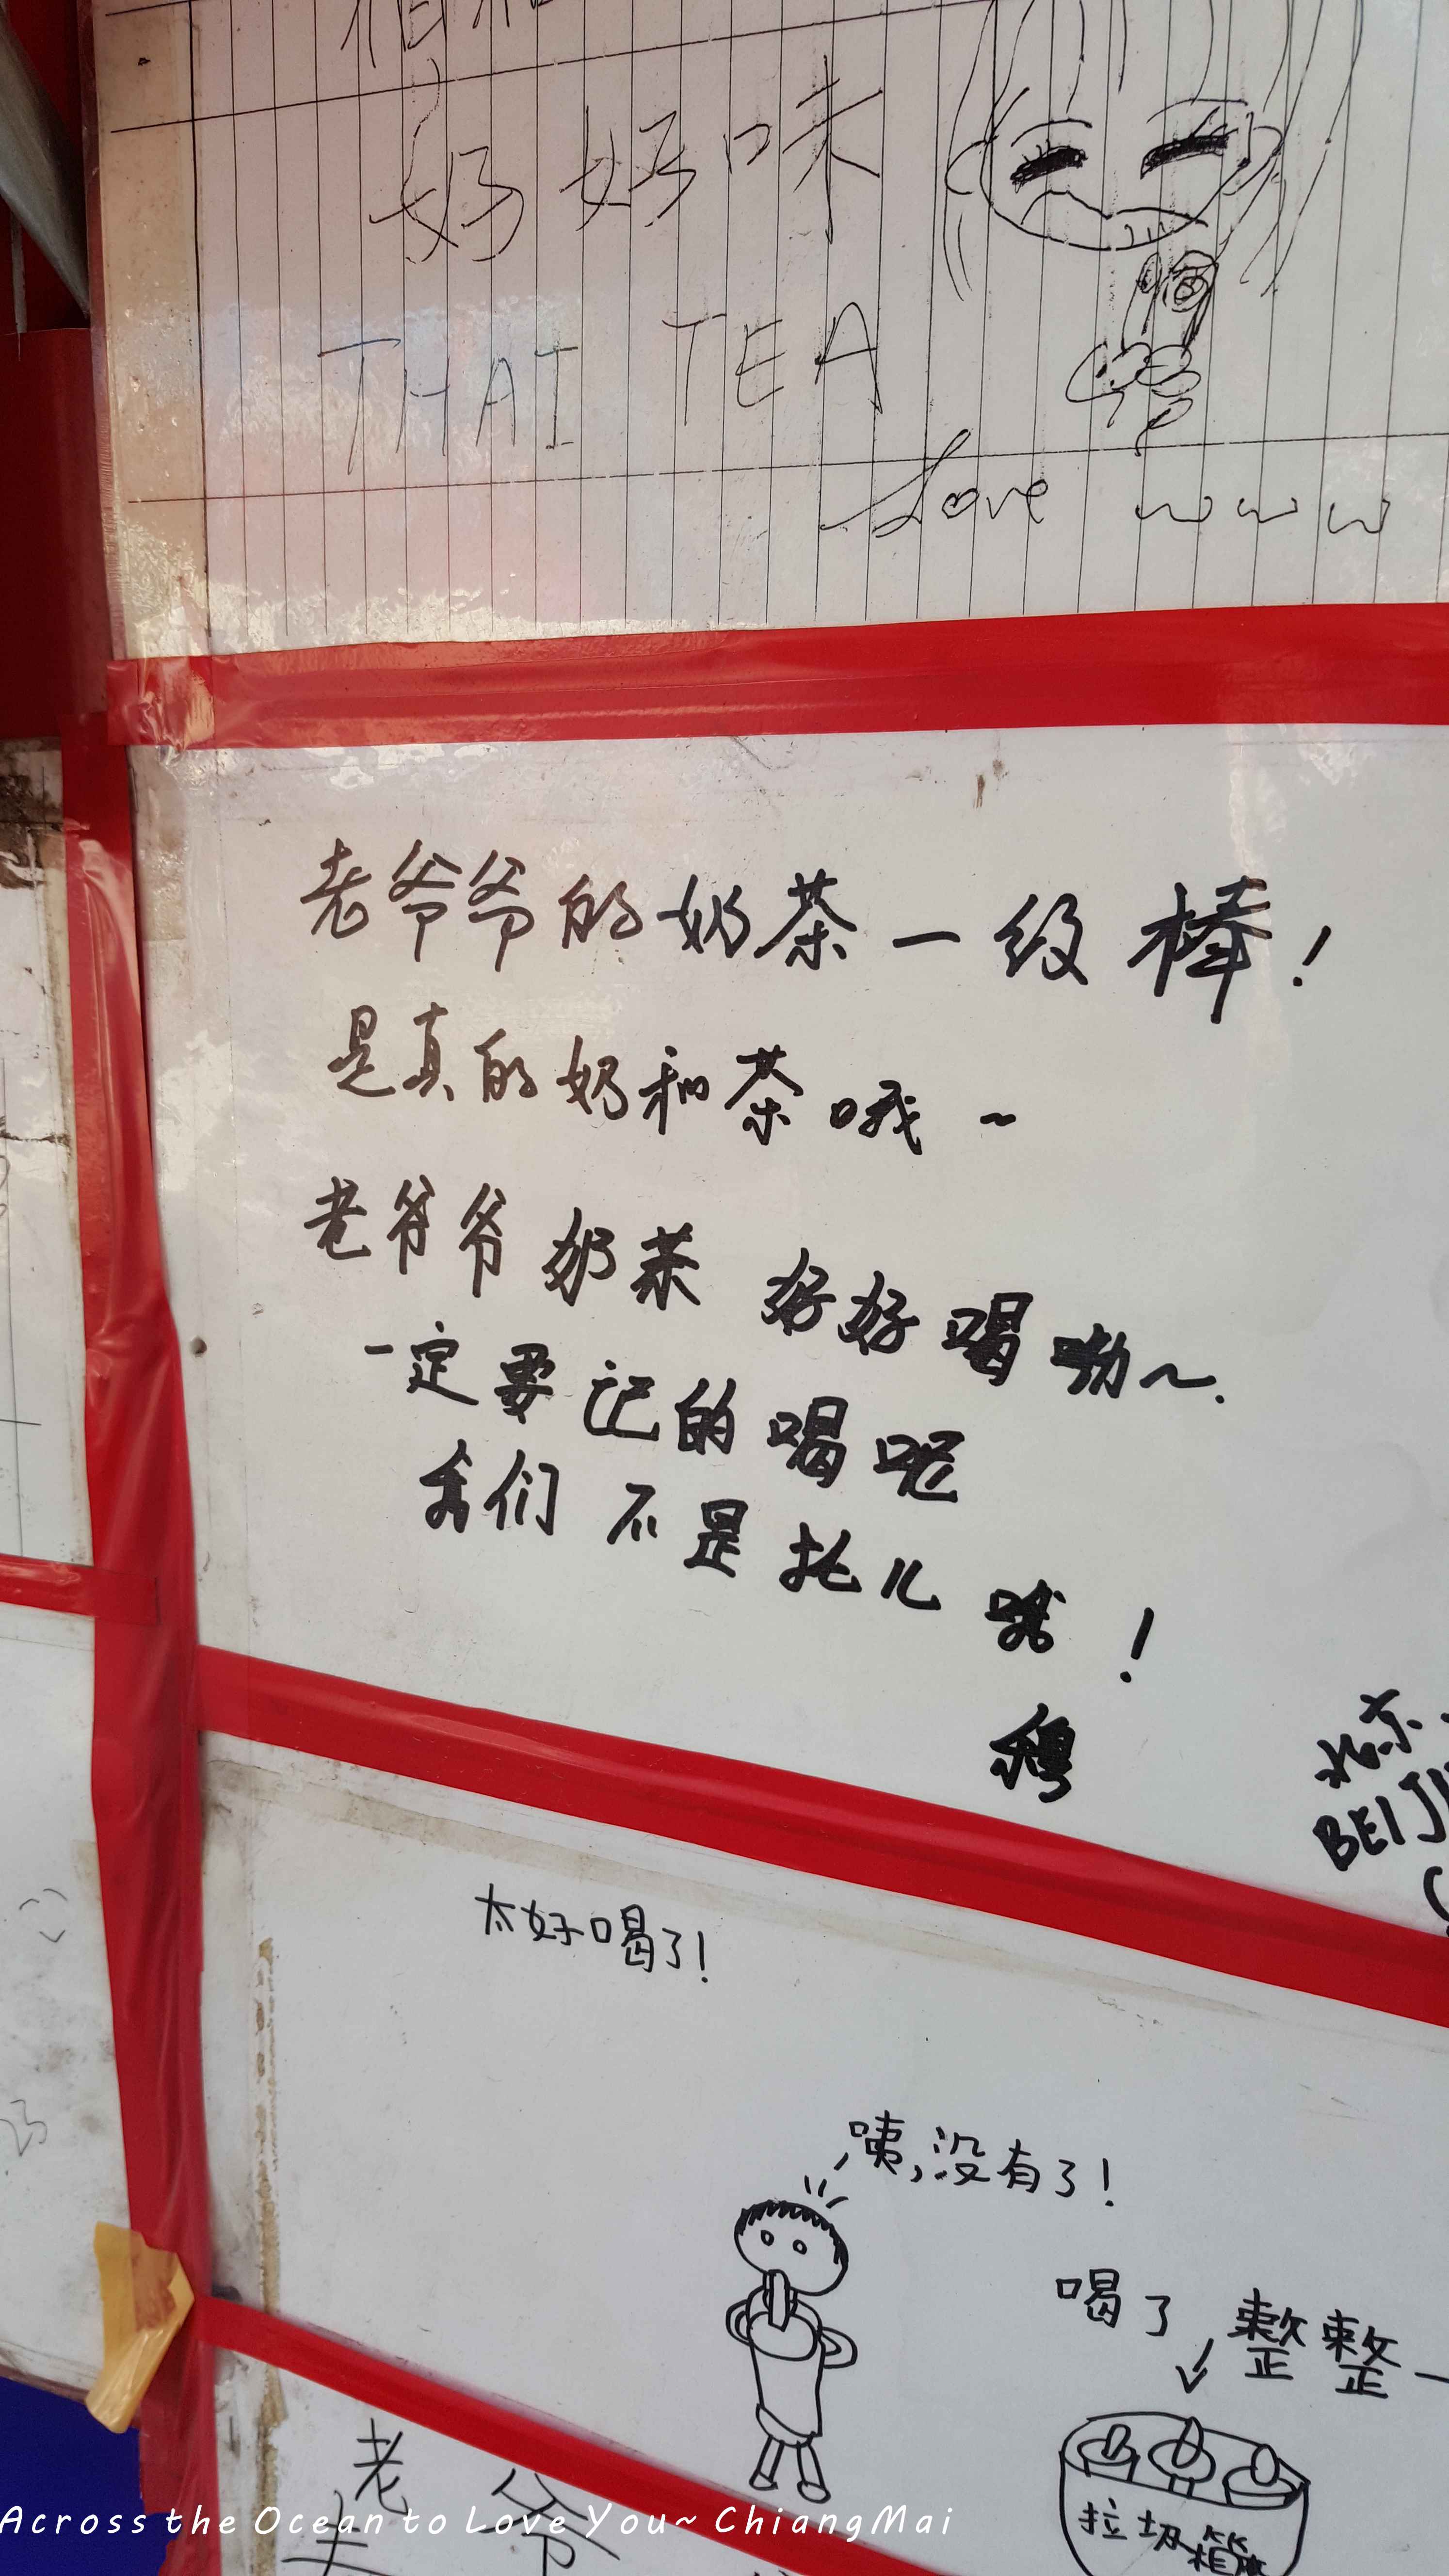 好好味
THAI TEA
Love www
老爷爷的奶茶一级棒!
是真的奶和茶哦~
老爷爷奶茶 好好喝呦~.
一定要记的喝呢
我们不是托儿哦!
穆
北京
太好喝了!
咦,没有了!
喝了,整整一
垃圾箱
老爷
Across the Ocean to Love You~ ChiangMai